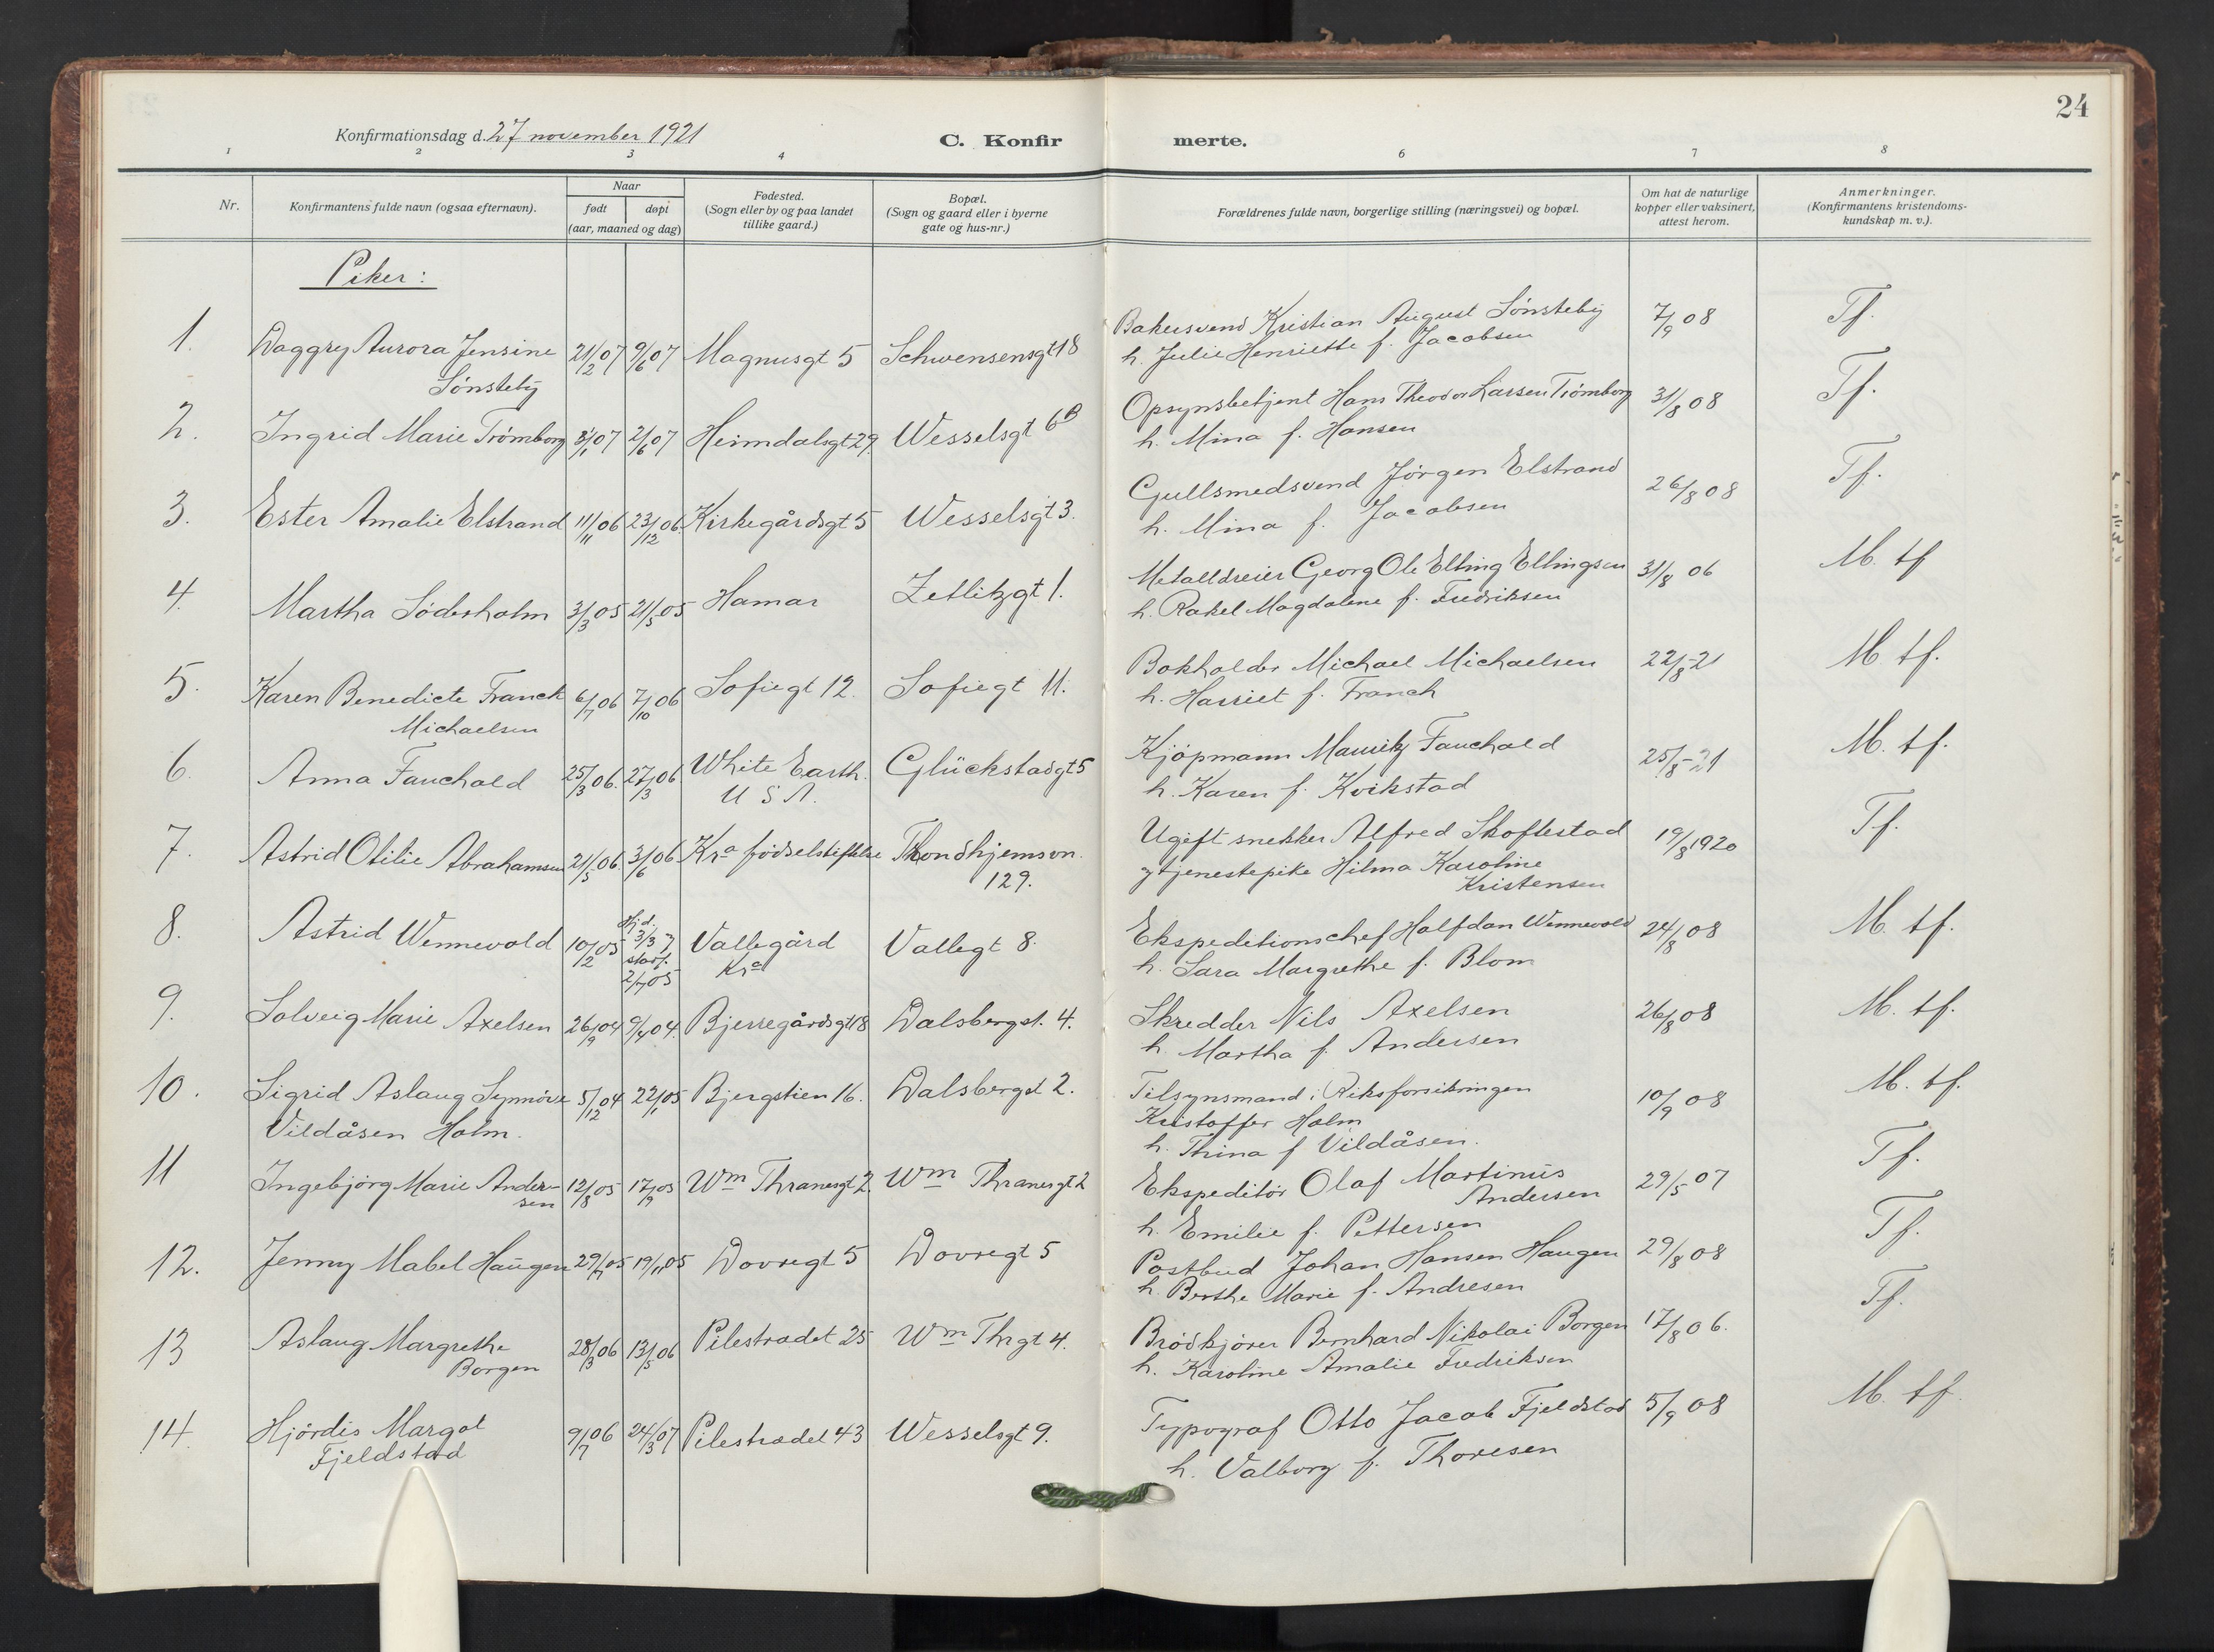 24
Konfirmationsdag d. 27 november 1921
C. Konfir merte.
1 2 3 4 6 7 8
Nr.
Konfirmantens fulde navn (ogsaa efternavn).
Naar
født døpt
(aar, maaned og dag)
Fødested.
(Sogn eller by og paa landet
tillike gaard.)
Bopæl.
(Sogn og gaard eller i byerne
gate og hus-nr.)
Forældrenes fulde navn, borgerlige stilling (næringsvei) og bopæl.
Om hat de naturlige
kopper eller vaksinert,
attest herom.
Anmerkninger.
(Konfirmantens kristendoms-
kundskap m. v.).
Piker:
1. Daggry Aurora Jensine 21/2 07 9/6 07 Magnusgt 5 Schwensensgt 18 Bakersvend Kristian August Sønsteby 7/9 08 Tf.
Sønsteby h. Julie Henriette f. Jacobsen
2. Ingrid Marie Trømborg 8/1 07 2/6 07 Heimdalsgt 29. Wesselsgt 6B Opsynsbetjent Hans Theodor Larsen Trømborg 31/8 08 Tf.
h. Mina f. Hansen
3. Ester Amalie Elstrand 11/11 06 23/12 06. Kirkegårdsgt 5 Wesselsgt 3. Gullsmedsvend Jørgen Elstrand 26/8 08 Tf.
h. Mina f. Jacobsen
4. Martha Söderholm 3/3 05 21/5 05 Hamar Zetlitzgt 1. Metalldreier Georg Ole Elling Ellingsen 31/8 06 M. tf
h. Rakel Magdalene f. Fredriksen
5. Karen Benedicte Franck 6/7 06 7/10 06 Sofiegt 12. Sofiegt 11. Bokholder Michael Michaelsen 22/8-21 M tf.
Michaelsen h. Harriet f. Franck
6. Anna Fauchald 25/3 06. 27/3 06 White Earth. Glückstadgt 5 Kjøpmann Mauritz Fauchald 25/8-21 M. tf.
U S A. h. Karen f. Kvikstad
7. Astrid Otilie Abrahamsen 21/5 06. 3/6 06 Kra fødselstiftelse Throndhjemsvn. Ugift snekker Alfred Skoftestad 19/8 1920 Tf.
129. og tjenestepike Hilma Karoline
Kristensen
8. Astrid Wennevold 10/2 05 Hjd. 3/3 Vallegård Vallegt 8. Ekspeditionschef Halfdan Wennevold 24/8 08 M. tf.
stadf. 2/7 05 Kra h. Sara Margrethe f. Blom
9. Solveig Marie Axelsen 26/9 04 9/4 04. Bjerregårdsgt 18 Dalsbergst. 4. Skredder Nils Axelsen 26/8 08 M. tf.
h. Martha f. Andersen
10. Sigrid Aslaug Synnöve 5/12 04 22/1 05 Bjergstien 16. Dalsbergst 2. Tilsynsmand i Riksforsikringen 10/9 08 M. tf.
Vildåsen Holm. Kristoffer Holm
h. Thina f Vildåsen.
11 Ingebjörg Marie Ander- 12/8 05 17/9 05 Wm Thranesgt 2. Wm Thranesgt 2 Ekspeditør Olaf Martinus 29/5 07 Tf.
sen Andersen
h. Emilie f. Pettersen
12. Jenny Mabel Haugen 29/7 05 19/11 05 Dovregt 5 Dovregt 5 Postbud Johan Hansen Haugen 29/8 08 Tf.
h. Berthe Marie f. Andresen
13 Aslaug Margrethe 28/3 06 13/5 06 Pilestrædet 25 Wm Thrgt 4. Brødkjører Bernhard Nikolai Borgen 17/8 06. Tf.
Borgen h. Karoline Amalie Fredriksen
14. Hjördis Margot 9/7 06 24/3 07 Pilestrædet 43 Wesselsgt 9. Typograf Otto Jacob Fjeldstad 5/9 08 M. tf.
Fjeldstad h. Valborg f. Thoresen